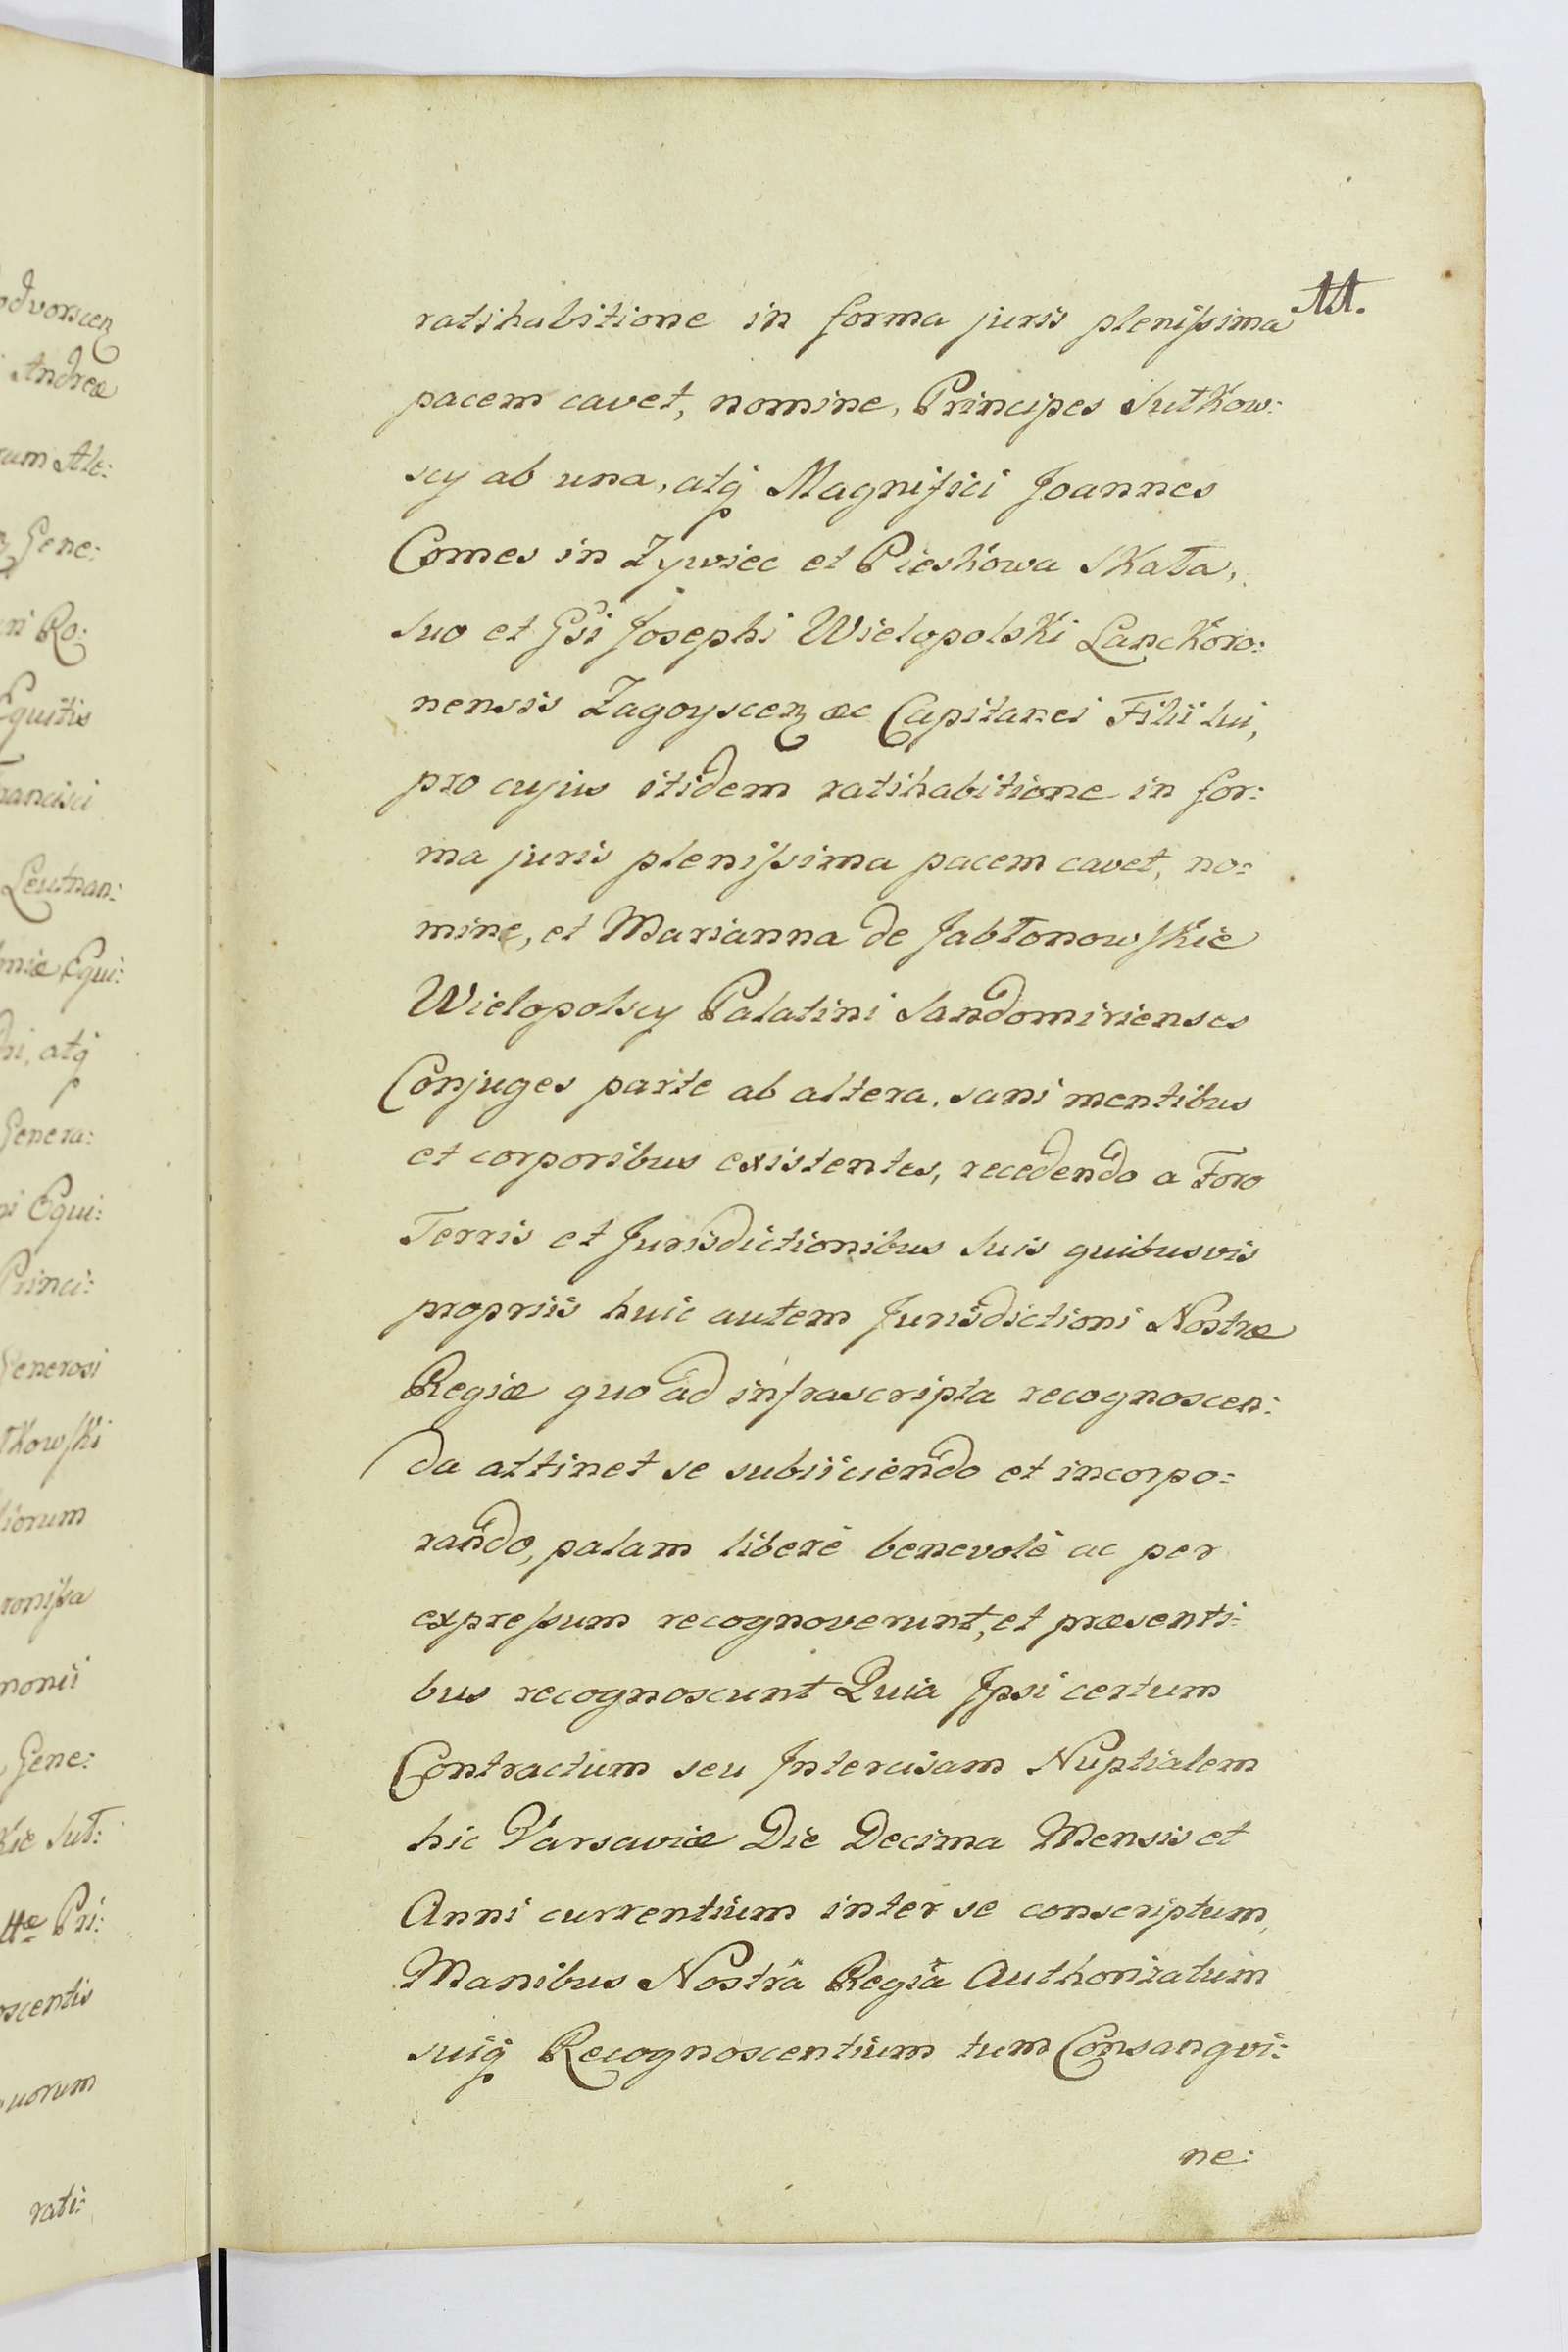 dvorscen
Andreæ
rum Ale:
Gene:
ni Ro:
Equitis
rancisci
Leutnan:
niæ Equi:
atq
Genera:
ni Equi:
Princi:
Generosi
tkowski
liorum
ronissa
monii
Gene:
kie Suł:
ttæ Pri:
oscentis
uorum
rati:
11.
ratihabitione in forma juris plenissima
pacem cavet, nomine, Principes Sułkow:
scy ab una, atq Magnifici Joannes
Comes in Zywiec et Pieskowa Skała,
Suo et Gsi Josephi Wielopolski Lanckoro:
nensis Zagoyscen æc Capitanei Filii sui,
pro cujus itidem ratihabitione in for:
ma juris plenissima pacem cavet, no:
mine, et Marianna de Jabłonowskie
Wielopolscy Palatini Sandomirienses
Conjuges parte ab altera, sani mentibus
et corporibus existentes, recedendo a Foro
Terris et Jurisdictionibus Suis quibusvis
propriis huic autem Jurisdictioni Nostræ
Regiæ quo ad infrascripta recognoscen:
da attinet se subiiciendo et incorpo:
rando, palam liberè benevolè ac per
expressum recognoverunt, et præsenti:
bus recognoscunt Quia Ipsi certum
Contractum seu Intercisam Nuptialem
hic Varsaviæ Die Decima Mensis et
Anni currentium inter se conscriptum,
Manibus Nostrâ Regiâ Authorizatum
suiq Recognoscentium tum Consangvi:
ne: